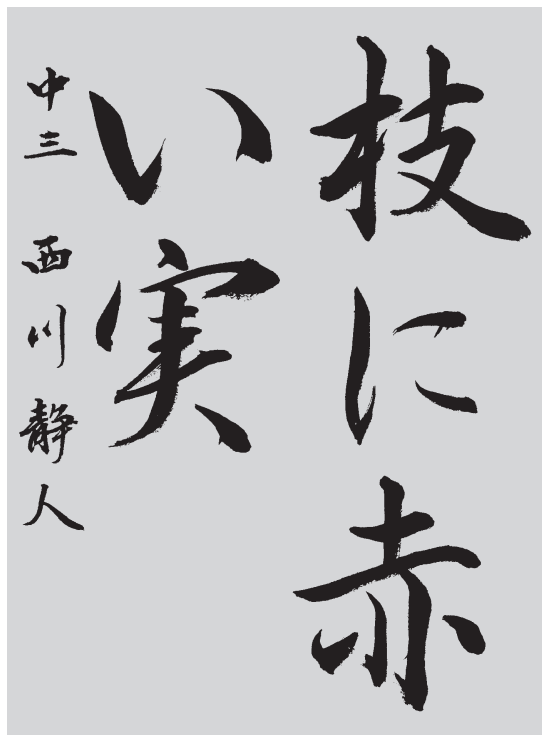 枝に赤
い実
中三 西川静人